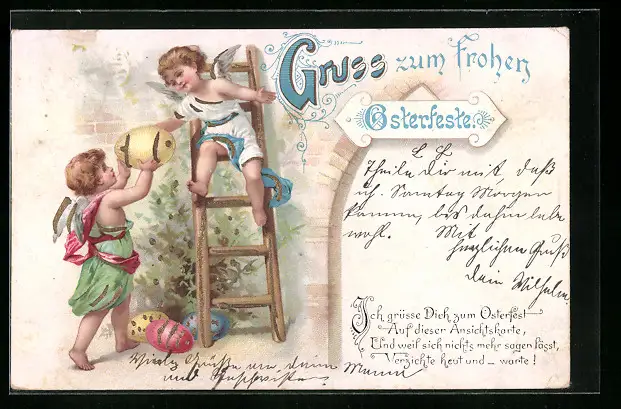 Gruss zum frohen
Osterfeste.
L. H.
Theile Dir mit, daß
ich Samstag Morgen
komme, bis dahin lebe
wohl. Mit
herzlichem Gruß
dein Wilhelm.
Ich grüsse Dich zum Osterfest
Auf dieser Ansichtskarte,
Und weil sich nichts mehr sagen lässt,
Verzichte heut und _ warte!
Viele Grüße an deine Mama
und Geschwister.